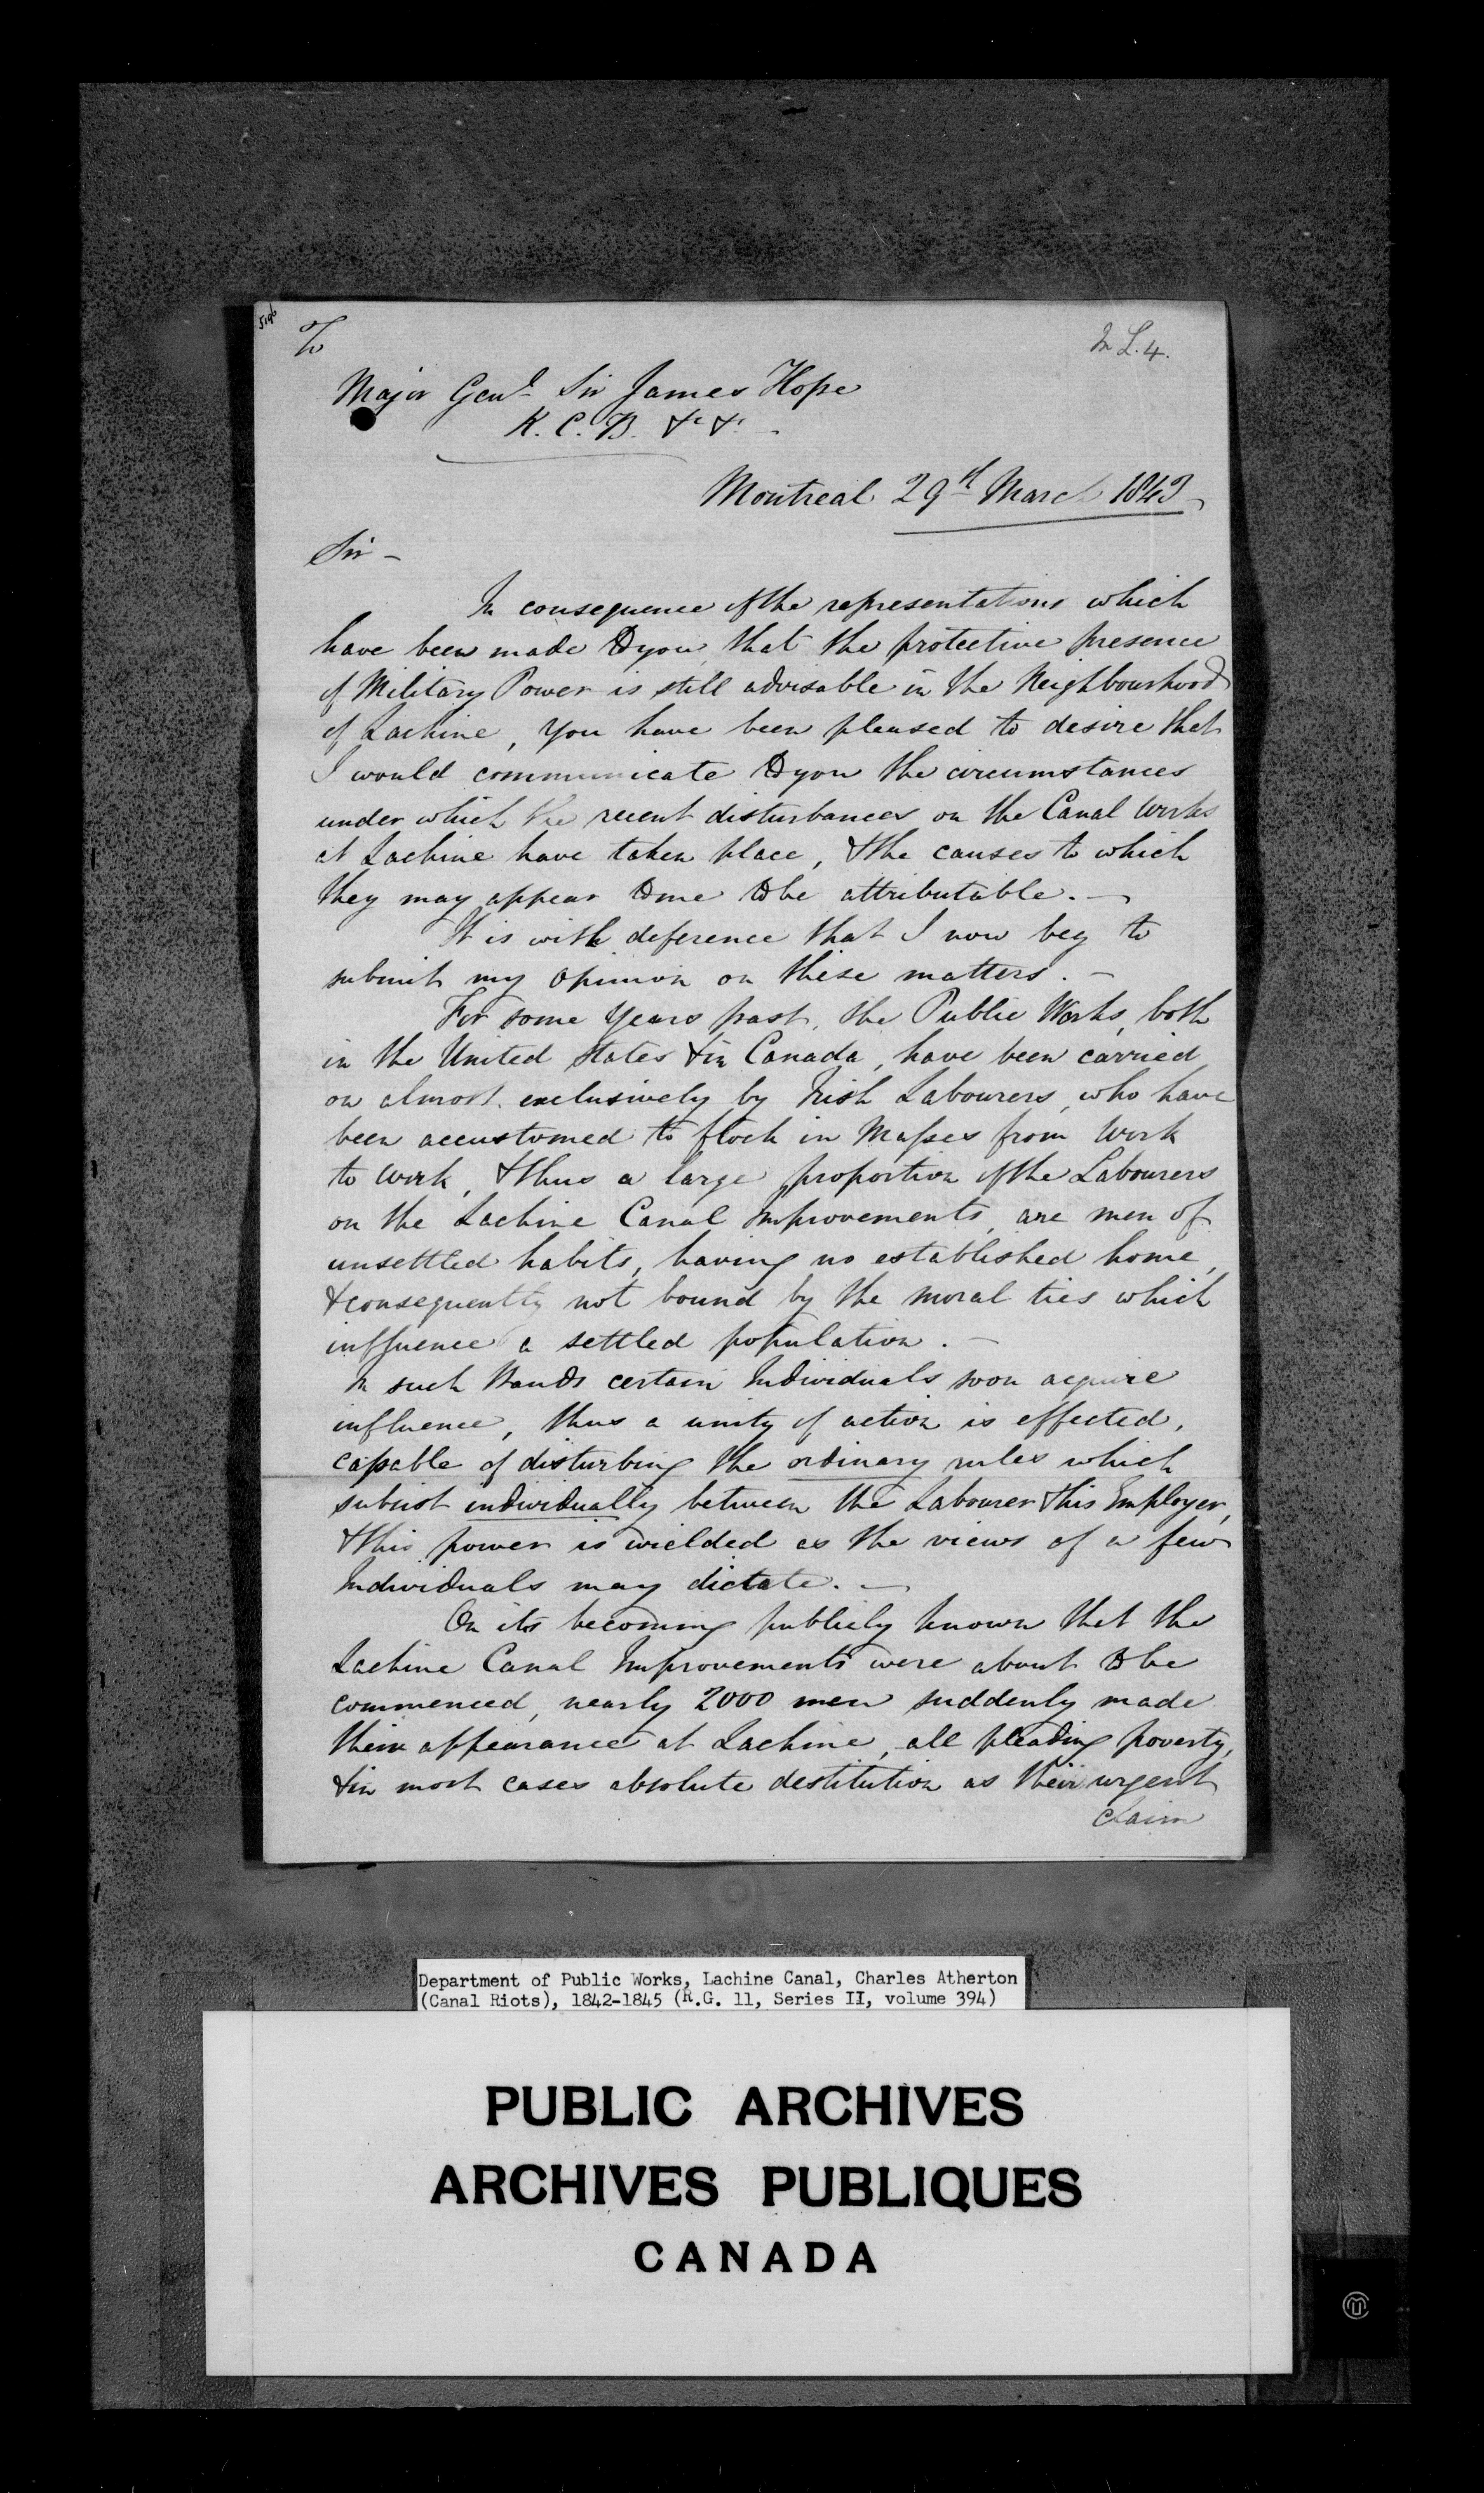 To
In L. 4.
Major Genl Sir James Hope
K. C. B. &c &c
Montreal 29th March 1843
Sir –
In consequence of the representations which
have been made to you, that the protective presence
of Military Power is still advisable in the Neighbourhood
of Lachine, you have been pleased to desire that
I would communicate to you the circumstances
under which the recent disturbances on the Canal Works
at Lachine have taken place, & the causes to which
they may appear to me to be attributable. –
It is with deference that I now beg to
submit my opinion on these matters. –
For some Years past, the Public Works, both
in the United States & in Canada, have been carried
on almost exclusively by Irish Labourers, who have
been accustomed to flock in Masses from Work
to Work, & thus a large proportion of the Labourers
on the Lachine Canal Improvements, are men of
unsettled habits, having no established home,
& consequently not bound by the moral ties which
influence a settled population. –
In such Bands certain Individuals soon acquire
influence, thus a unity of action is effected,
capable of disturbing the ordinary rules which
subsist individually between the Labourer & his Employer,
& this power is wielded as the views of a few
Individuals may dictate. –
On its becoming publicly known that the
Lachine Canal Improvements were about to be
commenced, nearly 2000 men suddenly made
their appearance at Lachine, all pleading poverty,
& in most cases absolute destitution as their urgent
claim
Department of Public Works, Lachine Canal, Charles Atherton
(Canal Riots), 1842-1845 (R.G. 11, Series II, volume 394)
PUBLIC ARCHIVES
ARCHIVES PUBLIQUES
CANADA